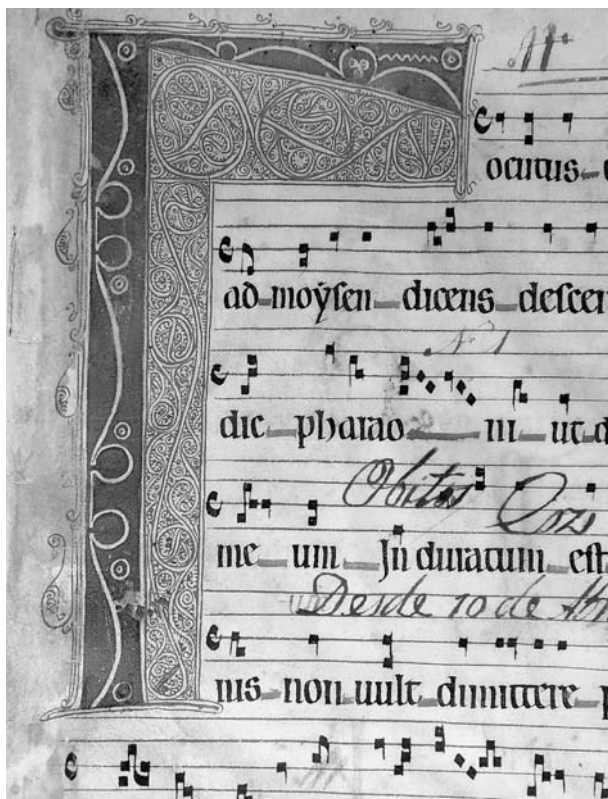 ocutus e
ad moÿsen dicens descen
Nº 1
dic pharao ni ut d
Obitos
me um Induratum est
Desde 10 de Abr
nis non uult dimittere p